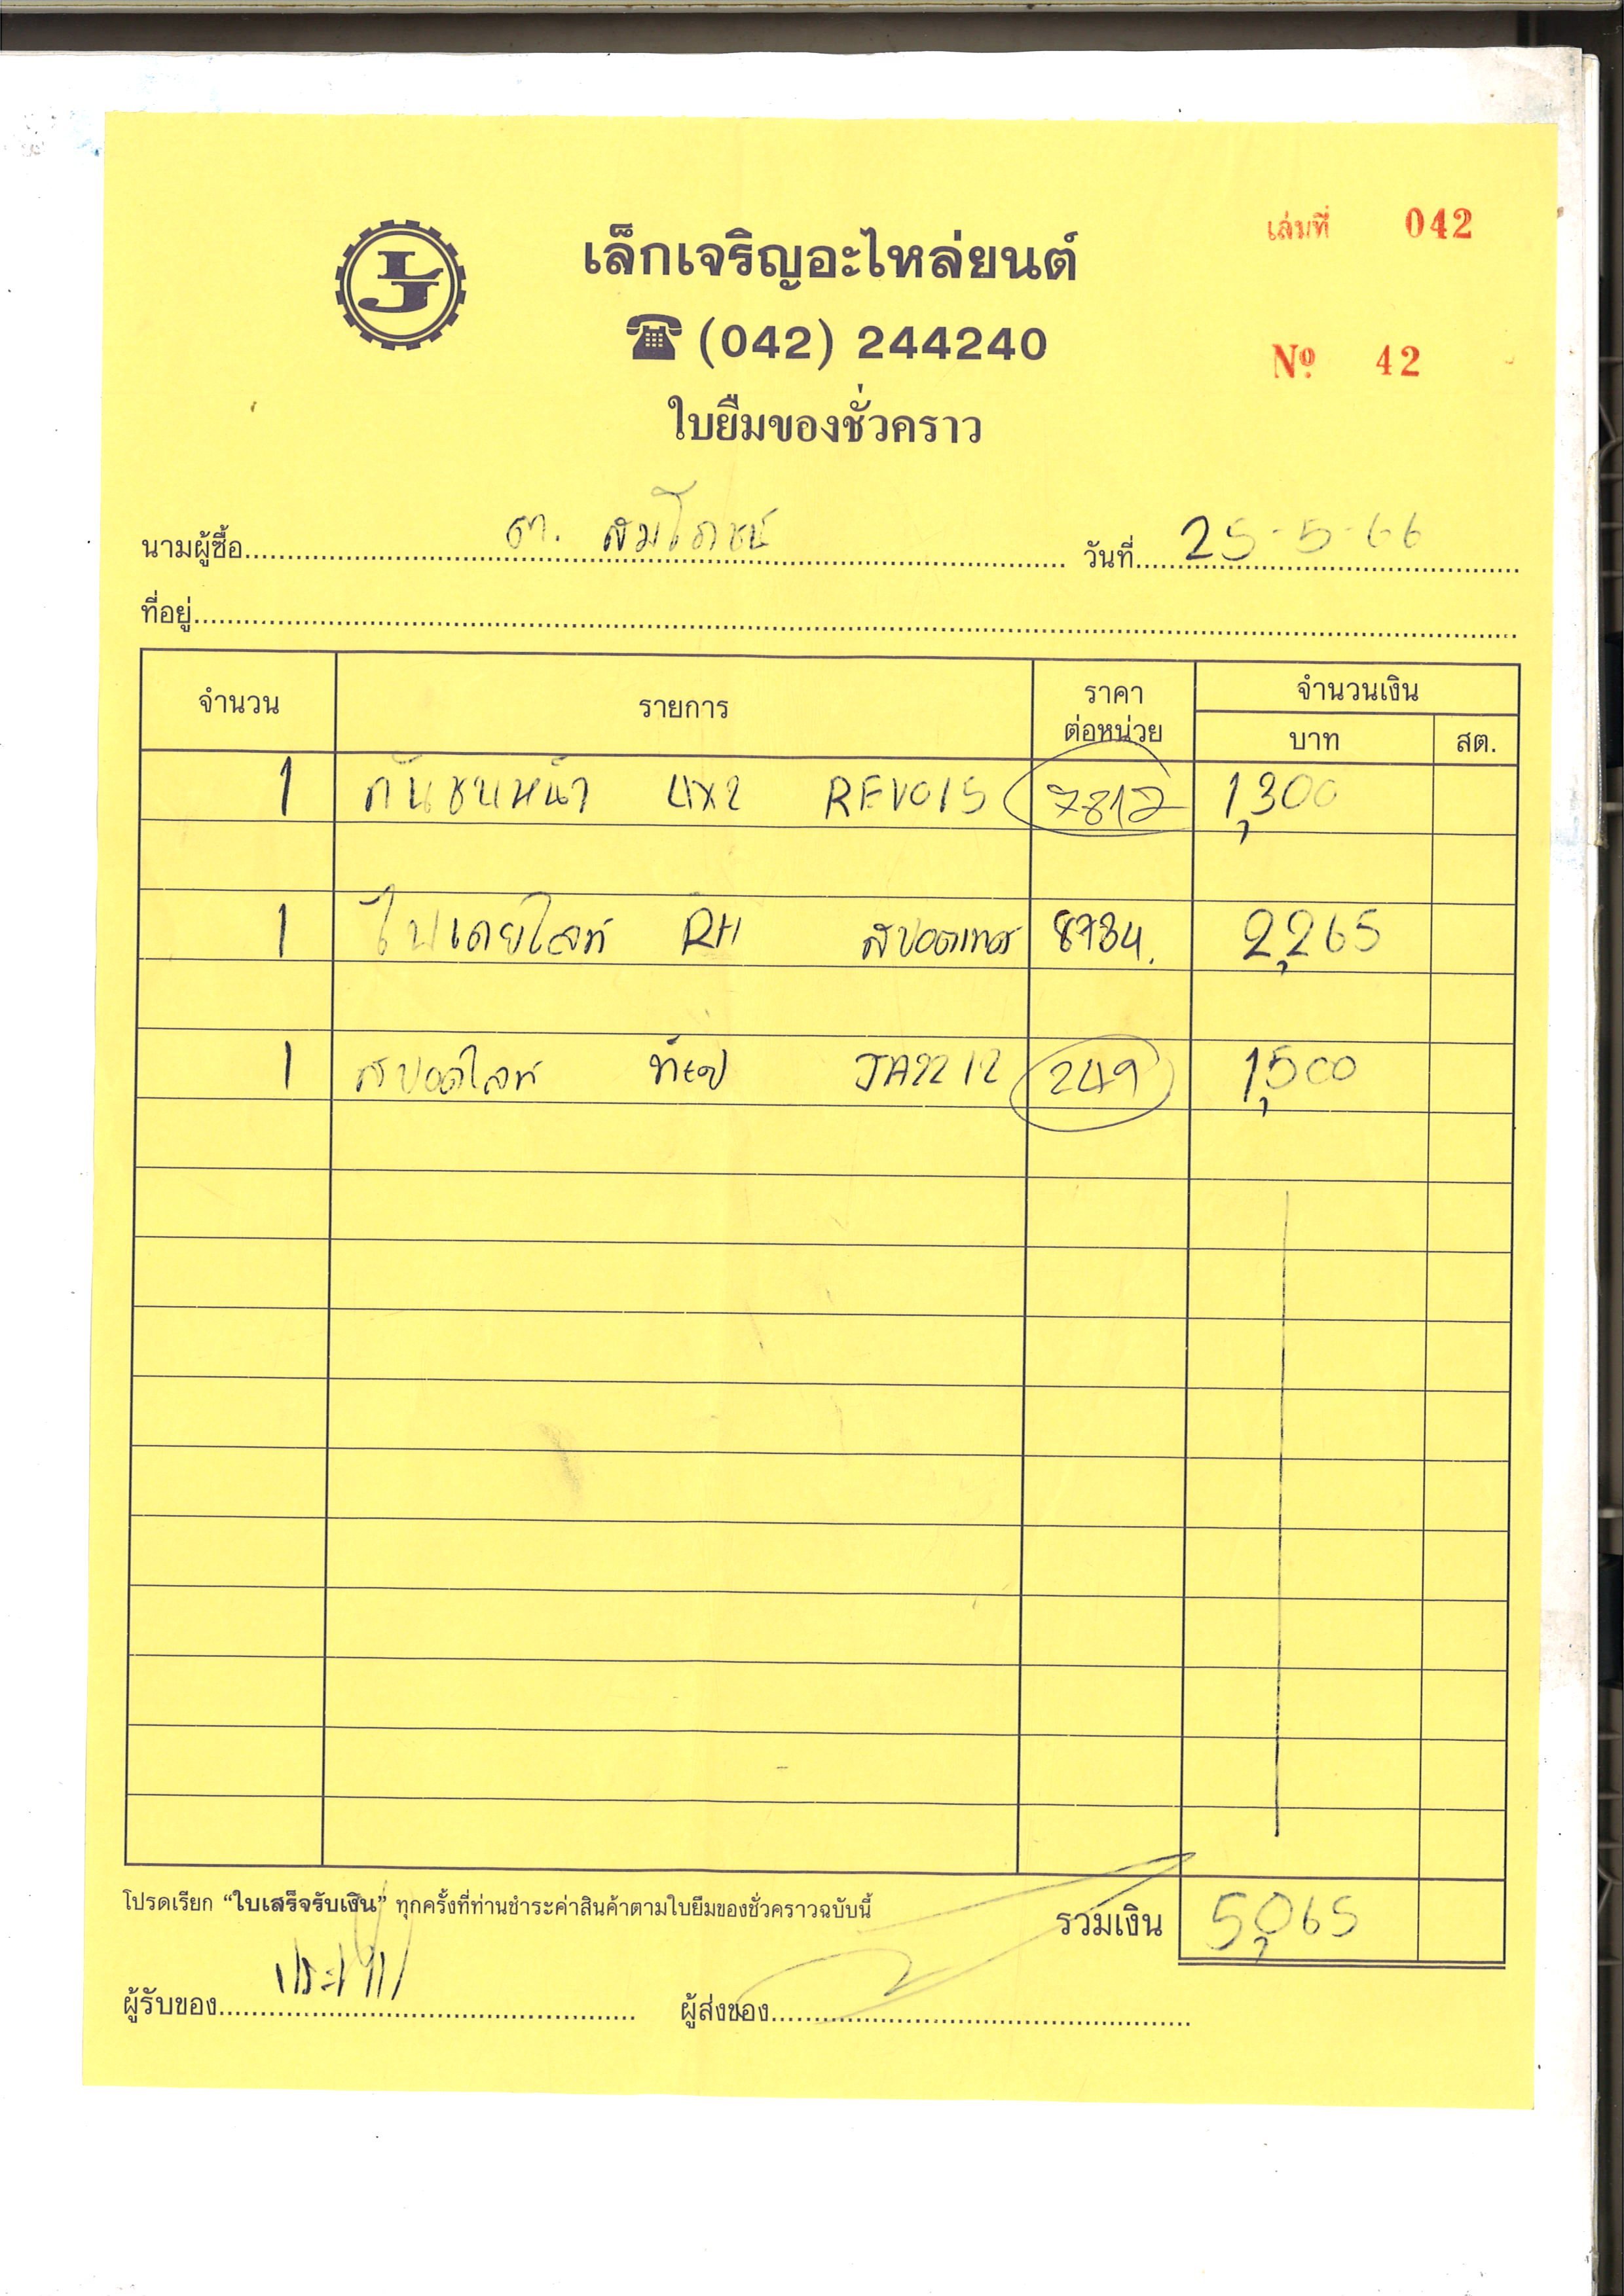 เล่มที่ 042
LJ
เล็กเจริญอะไหล่ยนต์
☎ (042) 244240
Nº 42
ใบยืมของชั่วคราว
นามผู้ซื้อ ต. สมโภชน์ วันที่ 25-5-66
ที่อยู่
จำนวน รายการ ราคาต่อหน่วย จำนวนเงิน
บาท สต.
1 กันชนหน้า 4x2 REVO15 7817 1,300
1 ไฟเดย์ไลท์ RH สปอตเทค 8734. 2,265
1 สปอตไลท์ JA2212 249 1,500
โปรดเรียก “ใบเสร็จรับเงิน” ทุกครั้งที่ท่านชำระค่าสินค้าตามใบยืมของชั่วคราวฉบับนี้
รวมเงิน 5,065
ผู้รับของ ผู้ส่งของ